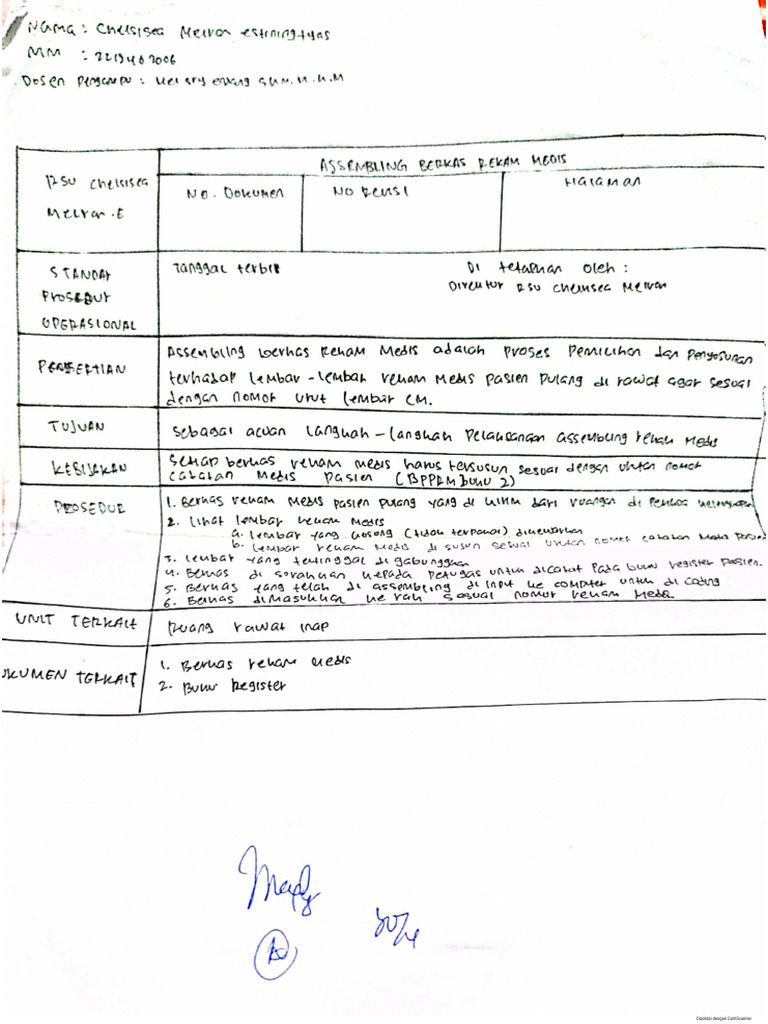 Nama : Chelsisea Melran estiningtyas
: 2219482006
Dosen Pengampu :
ASSEMBLING BERKAS REKAM MEDIS
RSU Chelsisea
Melran .E
NO. DOKUMEN
NO REVISI
Halaman
STANDAR
PROSEDUR
OPERASIONAL
Tanggal terbit
Di tetapkan oleh :
Direktur RSU Chelsisea Melran
PENGERTIAN
Assembling berkas Rekam Medis adalah Proses Pemilihan dan Penyusunan
terhadap lembar - lembar rekam medis pasien pulang di rawat agar sesuai
dengan nomor urut lembar CM.
TUJUAN
Sebagai acuan langkah - langkah Pelaksanaan assembling rekam Medis
KEBIJAKAN
Setiap berkas rekam medis harus tersusun sesuai dengan urutan nomor
catatan Medis Pasien (BPPRM BUKU 2)
PROSEDUR
1. Berkas rekam Medis pasien pulang yang di kirim dari ruangan di Periksa
2. Lihat lembar rekam Medis
a. Lembar yang kosong (tidak terpakai) dikeluarkan
b. Lembar rekam Medis di susun sesuai urutan nomor catatan Medis Pasien
3. Lembar yang tertinggal di gabungkan
4. Berkas di serahkan kepada Petugas untuk dicatat Pada buku register Pasien.
5. Berkas yang telah di assembling di input ke computer untuk di coding
6. Berkas dimasukkan ke rak sesuai nomor rekam Medis.
UNIT TERKAIT
Ruang rawat inap
OKUMEN TERKAIT
1. Berkas rekam Medis
2. Buku Register
Dipindai dengan CamScanner